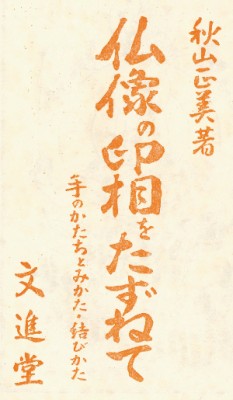 秋山正美著
仏像の印相をたずねて
手のかたちとみかた・結びかた
文進堂